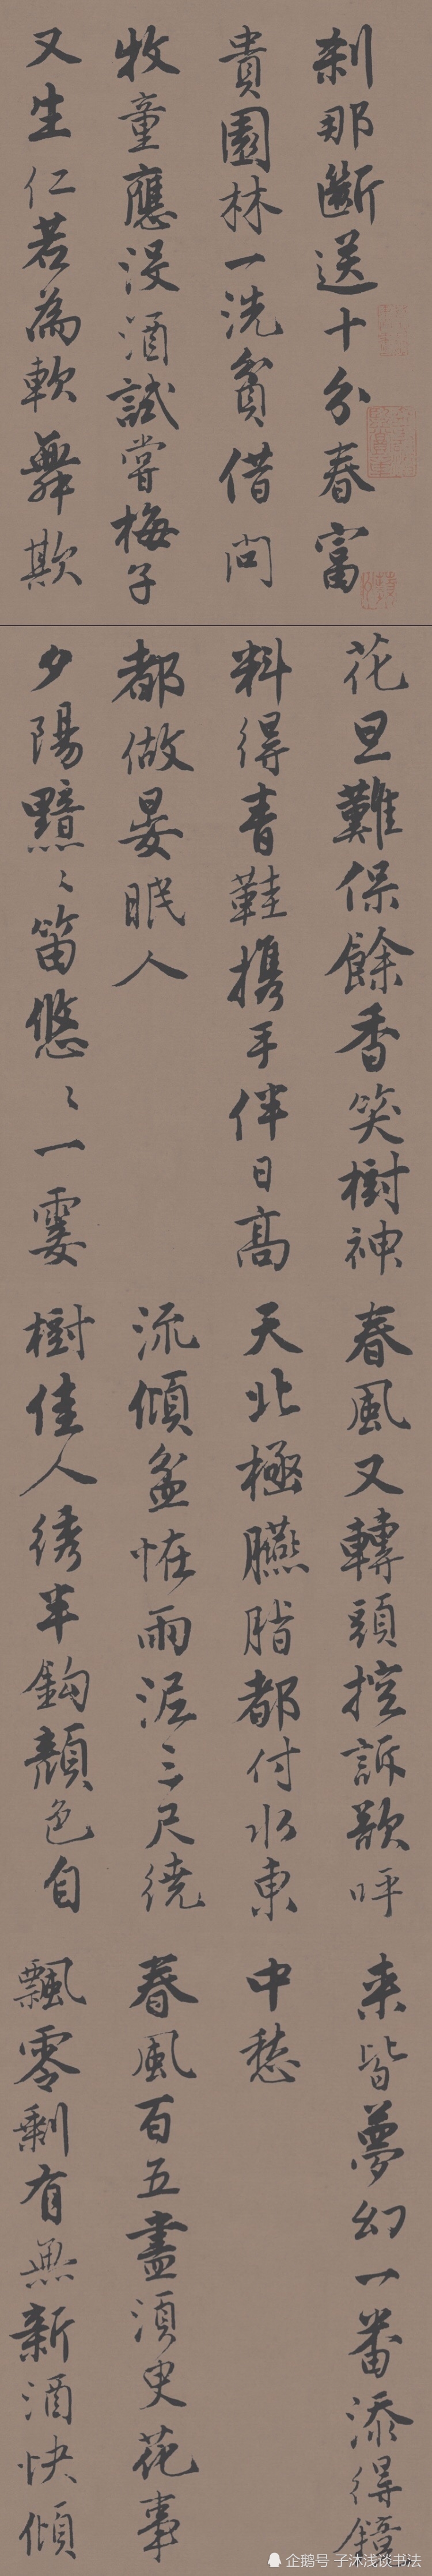 刹那斷送十分春富
貴園林一洗貧借問
牧童應沒酒試嘗梅子
又生仁若為軟舞欺
花旦難保餘香笑樹神
料得青鞋攜手伴日高
都做晏眠人
夕陽黯〻笛悠〻一霎
春風又轉頭控訴欲呼
天北極臙脂都付水東
流傾盆怪雨泥三尺繞
樹佳人綉半鈎顏色自
来皆夢幻一番添得鏡
中愁
春風百五盡須臾花事
飄零剩有無新酒快傾
企鹅号 子沐浅谈书法